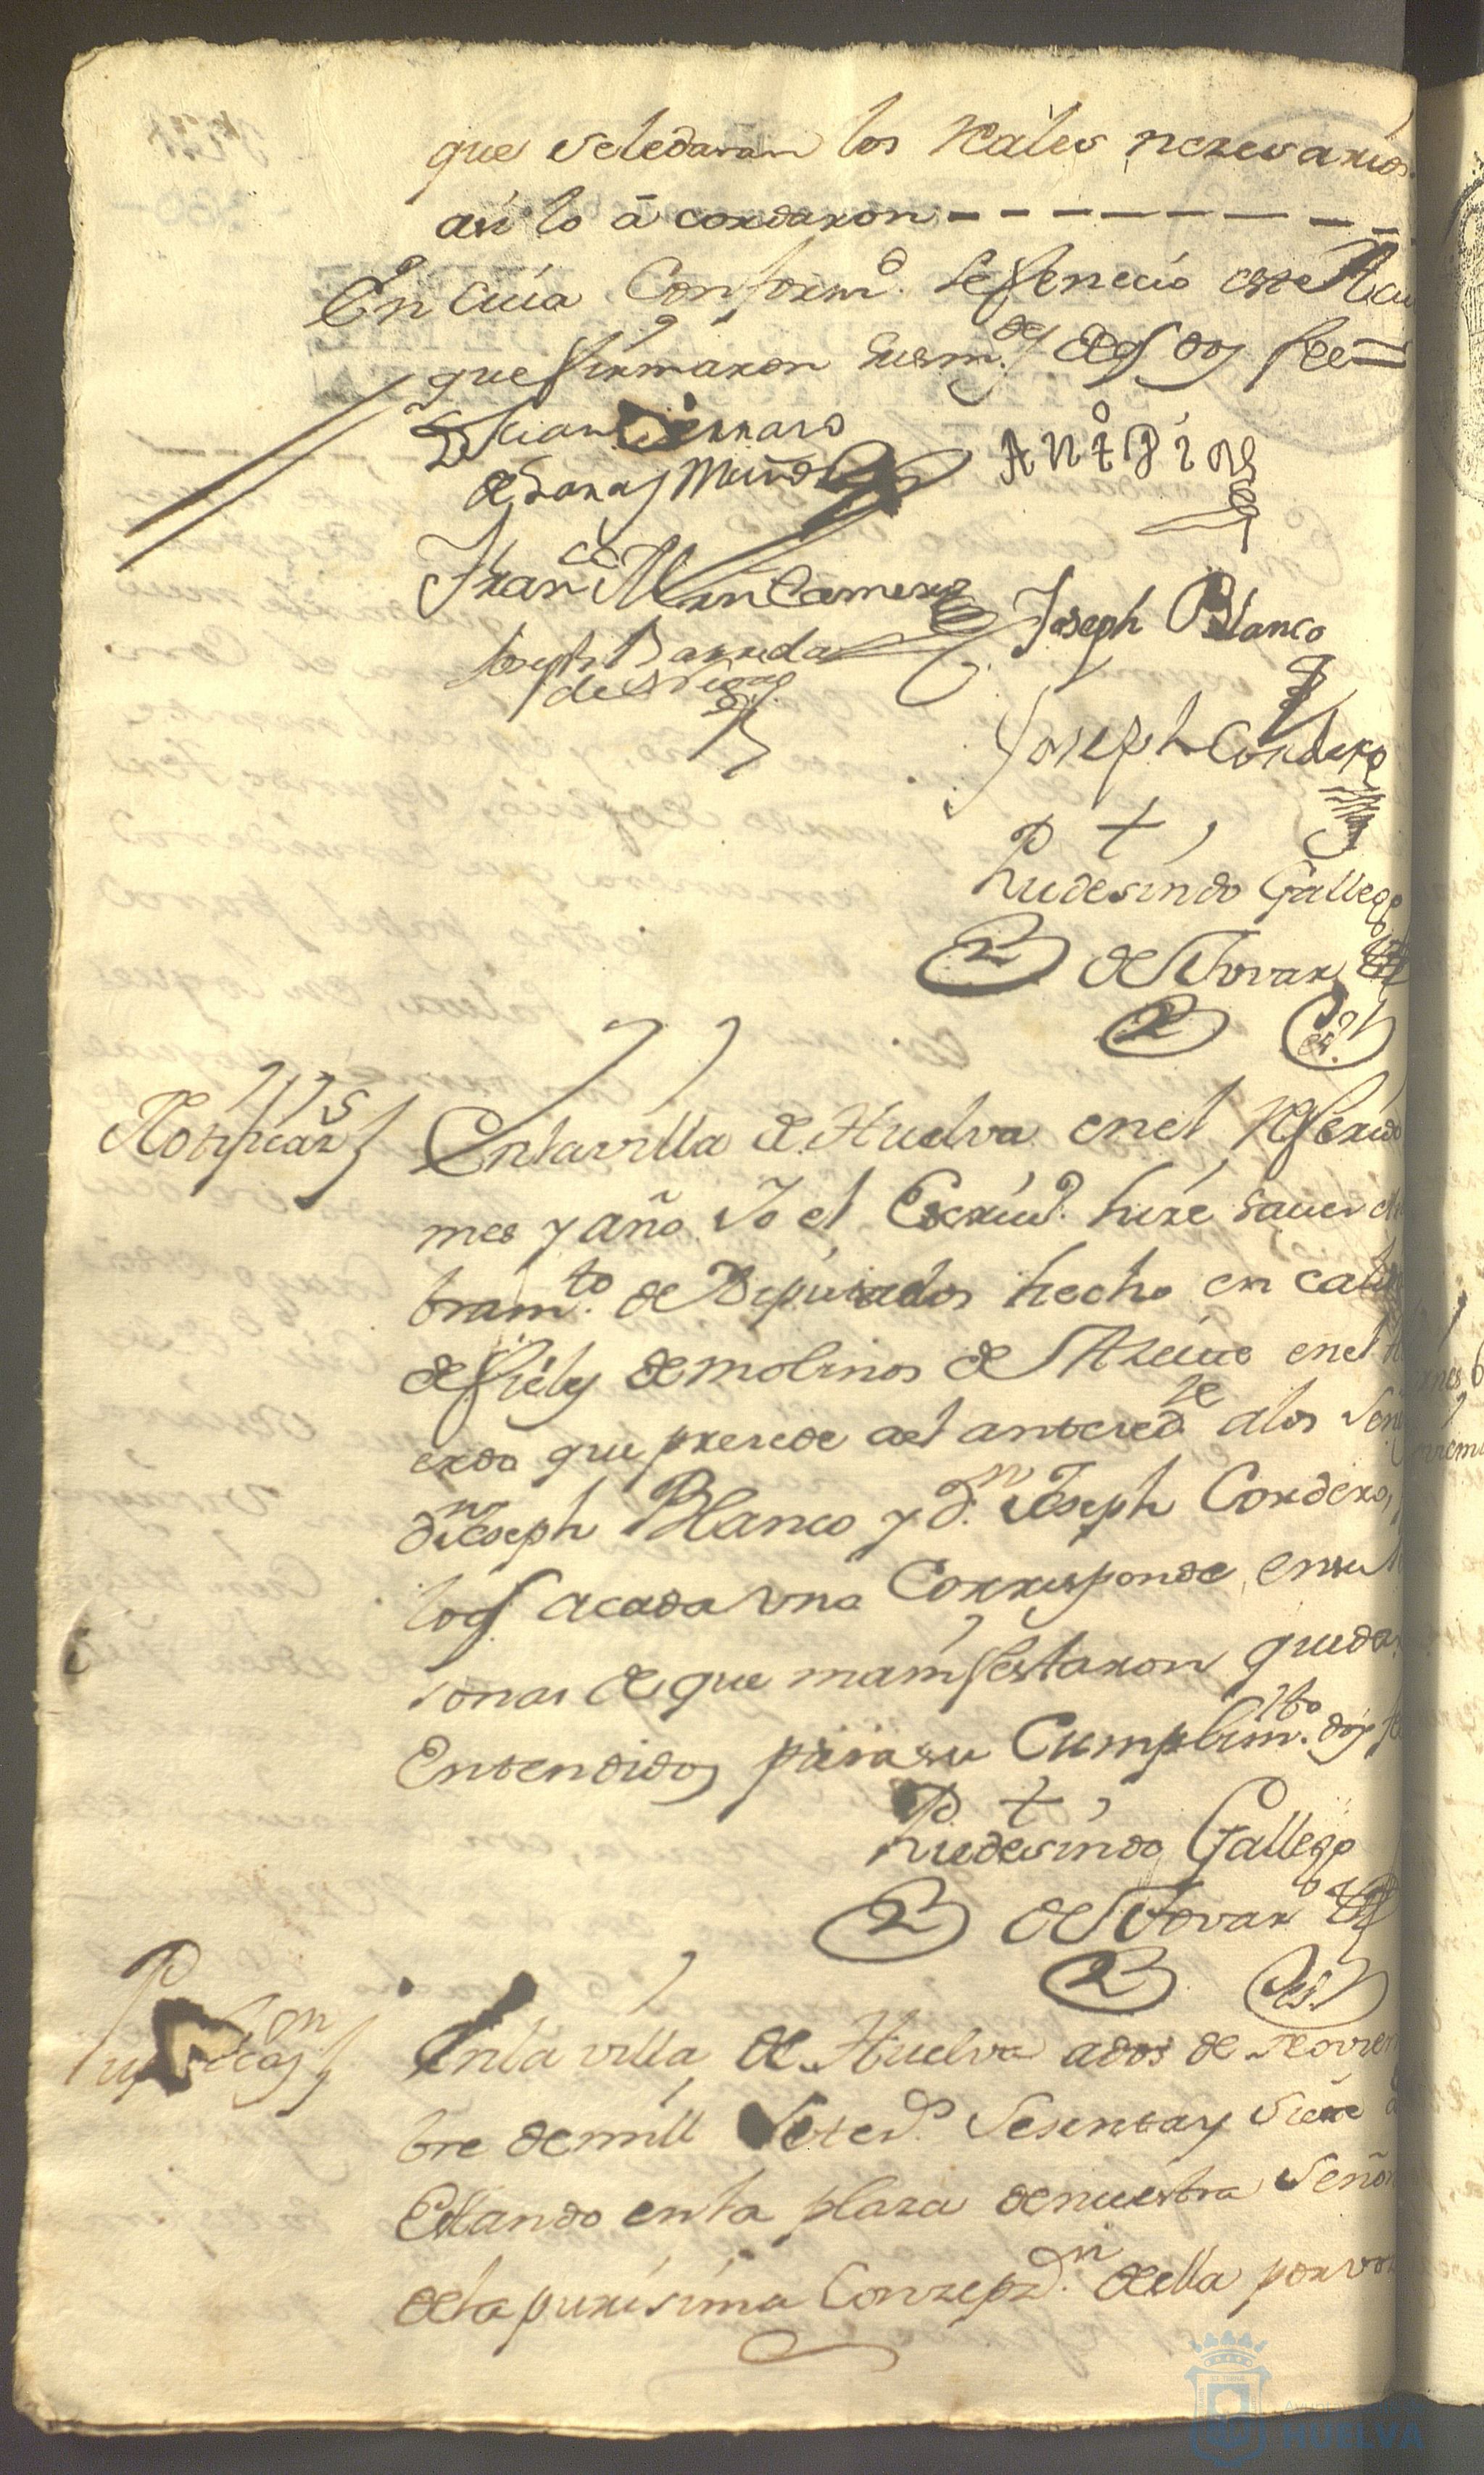 que seledaran los reales nezesarios
asi lo à cordaron
En cuia Conformd. se fenecio este Acu
que firmaron susmrds. de q. doy fee =
de Lara y Muñoz
Antº Piz
Franco Mrn Camero
Joseph Blanco
Joseph Barreda
Joseph Cordero
P + ,
Rudesindo Gallego
de Tovar
Es.
Notificaz
Enla villa de Huelva en el referido
mes y año Yo el Escriv. hize saver el
bramto. de Diputados hecho en cali
de fieles de molinos de Azeite enel
erdo que prezede del antezedte a los Señ
dn Joseph Blanco y dn. Joseph Cordero,
loq. acada uno Corresponde, ensu
sonas de que manifestaron queda
Entendidos para su Cumplimto. doy fe
P + ,
Rudesindo Gallego
de Tovar
Es.
Enla villa de Huelva a dos de Noviem
bre de mill Seteds. Sesenta y Siete
Estando enla plaza de nuestra Señor
dela purisima Conzepzn. della por voz
HUELVA